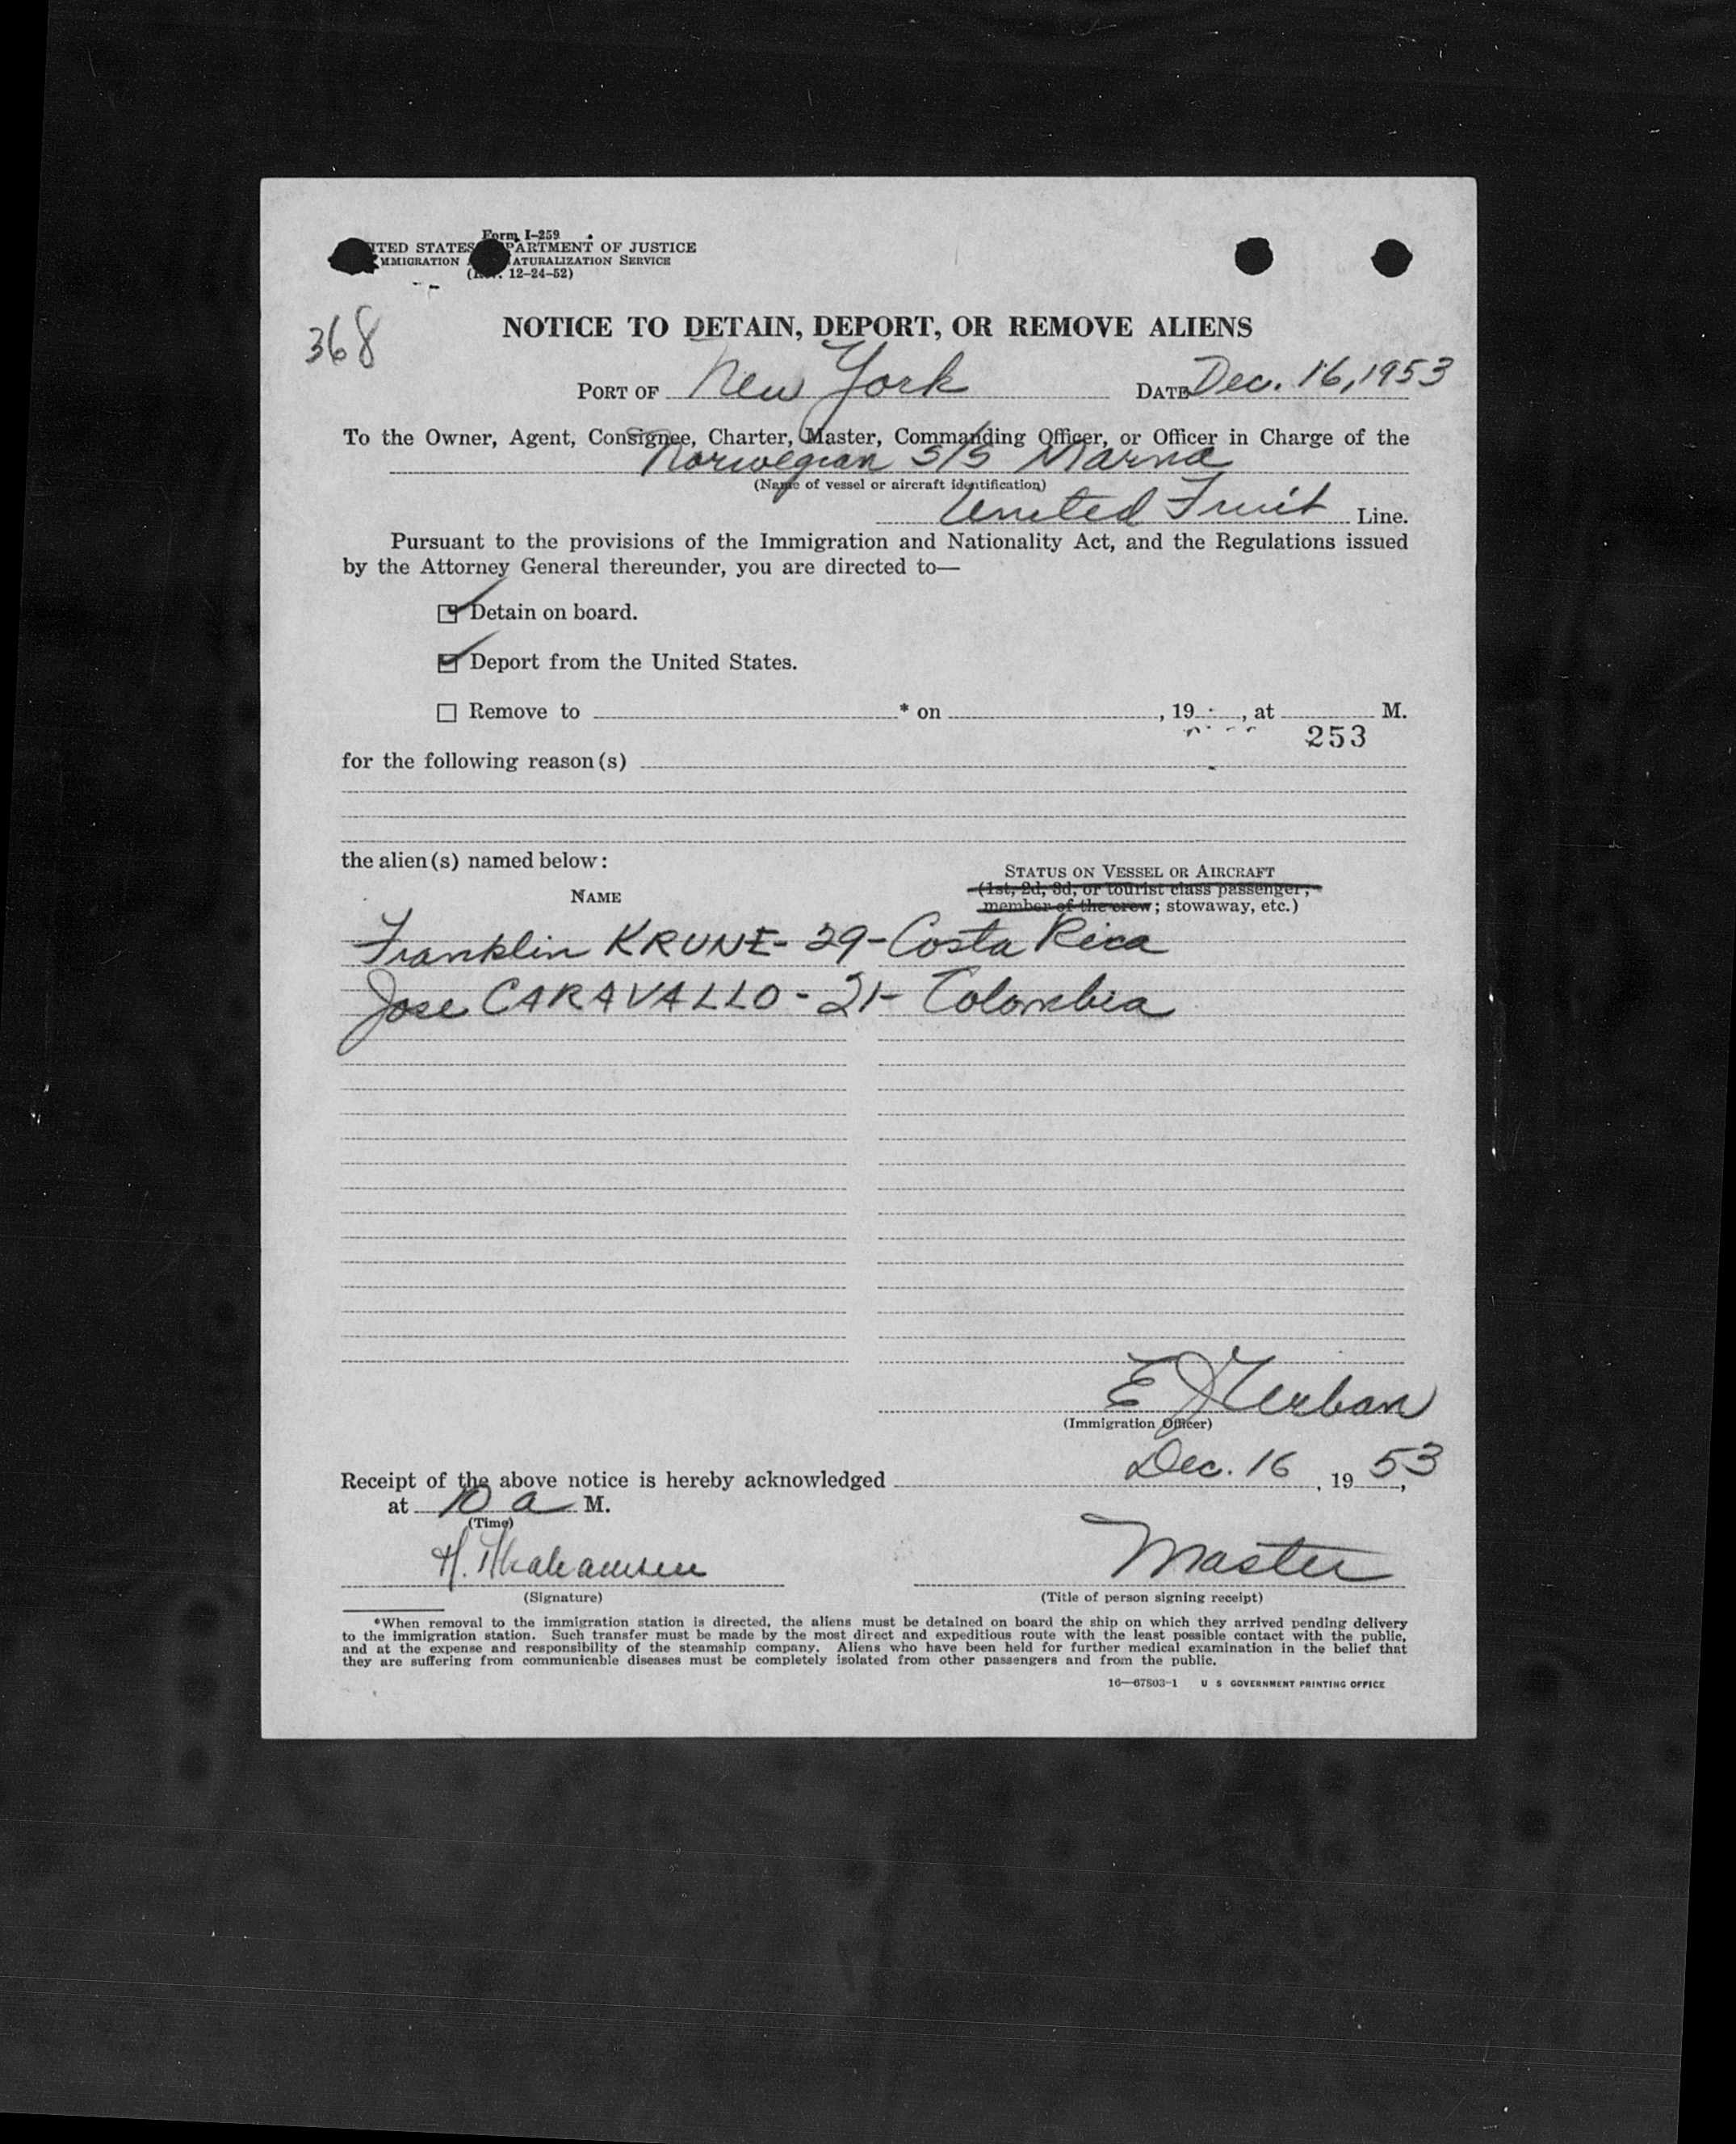 Form I-259
ITED STATES PARTMENT OF JUSTICE
MMIGRATION ATURALIZATION SERVICE
12-24-52)
368
NOTICE TO DETAIN, DEPORT, OR REMOVE ALIENS
PORT OF New York DATE Dec. 16, 1953
To the Owner, Agent, Consignee, Charter, Master, Commanding Officer, or Officer in Charge of the
Norwegian S/S Marna
(Name of vessel or aircraft identification)
United Fruit Line.
Pursuant to the provisions of the Immigration and Nationality Act, and the Regulations issued
by the Attorney General thereunder, you are directed to—
Detain on board.
Deport from the United States.
Remove to * on , 19 , at M.
253
for the following reason(s)
the alien(s) named below:
NAME
STATUS ON VESSEL OR AIRCRAFT
(1st, 2d, 3d, or tourist class passenger;
member of the crew; stowaway, etc.)
Franklin KRUNE - 29 - Costa Rica
Jose CARAVALLO - 21 - Colombia
E
(Immigration Officer)
Dec. 16, 19 53,
Receipt of the above notice is hereby acknowledged
at 10 a M.
(Time)
H. Abrahamsen
Master
(Signature)
(Title of person signing receipt)
*When removal to the immigration station is directed, the aliens must be detained on board the ship on which they arrived pending delivery
to the immigration station. Such transfer must be made by the most direct and expeditious route with the least possible contact with the public,
and at the expense and responsibility of the steamship company. Aliens who have been held for further medical examination in the belief that
they are suffering from communicable diseases must be completely isolated from other passengers and from the public.
16—67803-1 U S GOVERNMENT PRINTING OFFICE